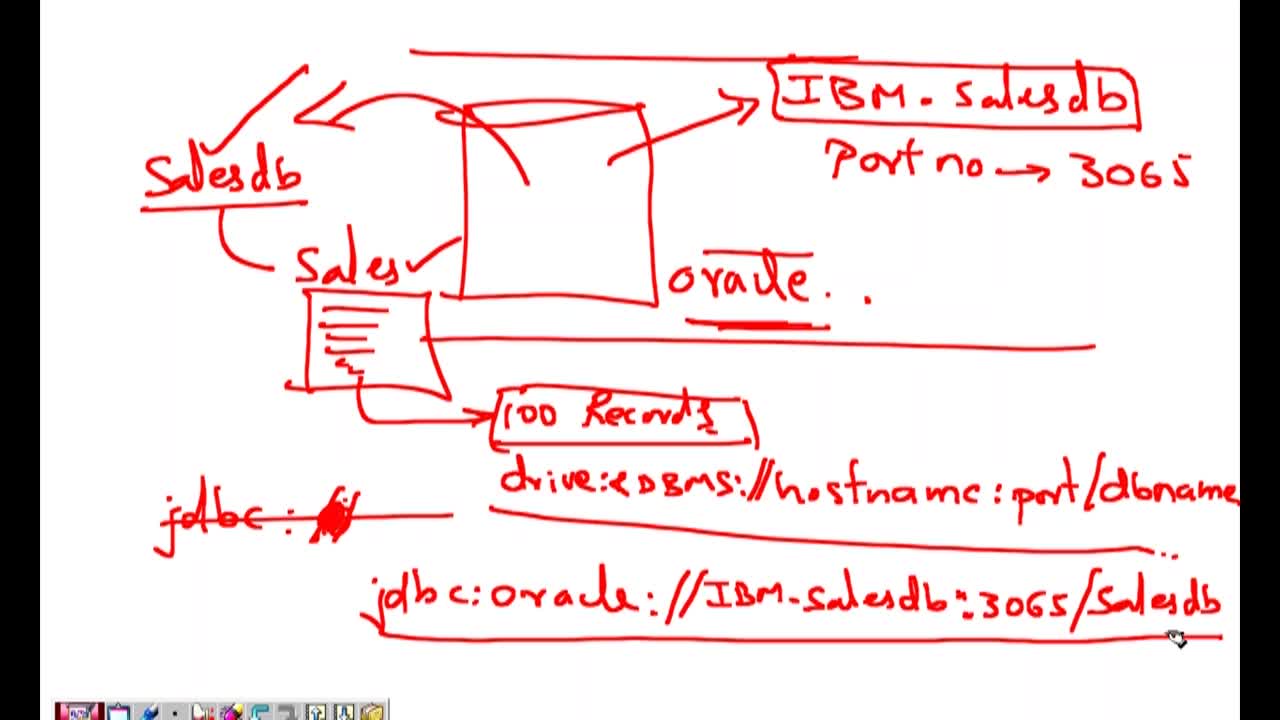 IBM-salesdb
Port no → 3065
Salesdb
Sales
oracle..
100 Records
drive:RDBMS://hostname:port/dbname
jdbc:
jdbc:oracle://IBM-salesdb:3065/Salesdb